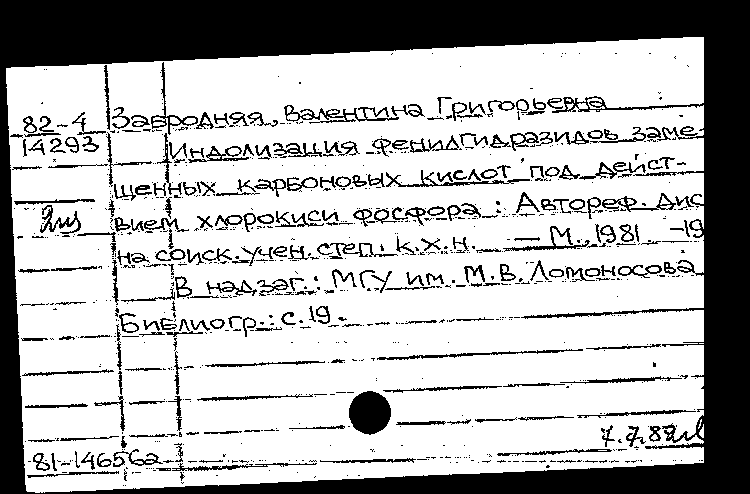 82-4 Забродняя, Валентина Григорьевна
14293 Индолизация фенилгидразидов заме-
щенных карбоновых кислот под дейст-
2из вием хлорокиси фосфора : Автореф. дис
на соиск. учен. степ. к.х.н. — М., 1981 -19
В надзаг.: МГУ им. М.В. Ломоносова
Библиогр.: с.19.
7.7.82
81-14656а